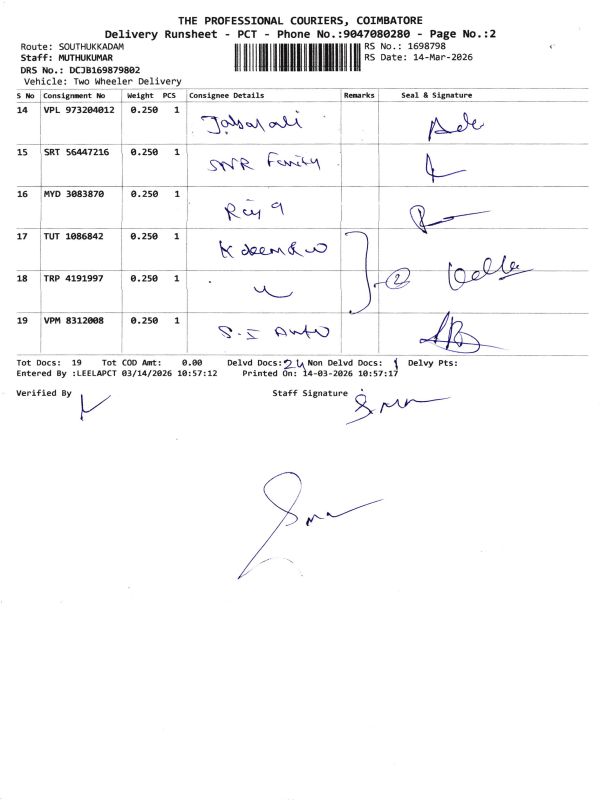 THE PROFESSIONAL COURIERS, COIMBATORE
Delivery Runsheet - PCT - Phone No.:9047080280 - Page No.:2
Route: SOUTHUKKADAM RS No.: 1698798
Staff: MUTHUKUMAR RS Date: 14-Mar-2026
DRS No.: DCJB169879802
Vehicle: Two Wheeler Delivery
S No Consignment No Weight PCS Consignee Details Remarks Seal & Signature
14 VPL 973204012 0.250 1
15 SRT 56447216 0.250 1 SNR Family
16 MYD 3083870 0.250 1
17 TUT 1086842 0.250 1
18 TRP 4191997 0.250 1 2
19 VPM 8312008 0.250 1 S.I Auto
Tot Docs: 19 Tot COD Amt: 0.00 Delvd Docs: 24 Non Delvd Docs: 1 Delvy Pts:
Entered By :LEELAPCT 03/14/2026 10:57:12 Printed On: 14-03-2026 10:57:17
Verified By Staff Signature